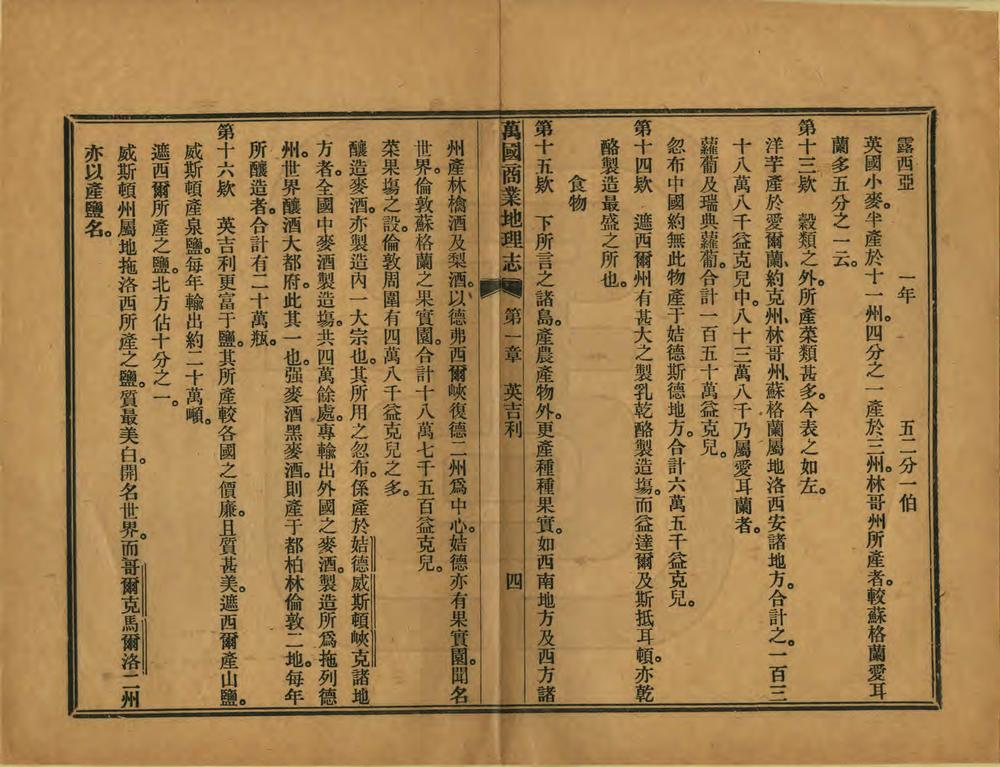 露西亞　一年　五二分一伯
英國小麥。半產於十一州。四分之一產於三州。林哥州所產者。較蘇格蘭愛耳
蘭多五分之一云。
第十三欵　穀類之外。所產菜類甚多。今表之如左。
洋芋產於愛爾蘭、約克州、林哥州、蘇格蘭屬地洛西安諸地方。合計之。一百三
十八萬八千益克兒中。八十三萬八千乃屬愛耳蘭者。
蘿蔔及瑞典蘿蔔。合計一百五十萬益克兒。
忽布中國約無此物產于姞德斯德地方。合計六萬五千益克兒。
第十四欵　遮西爾州有甚大之製乳乾酪製造塲。而益達爾及斯抵耳頓。亦乾
酪製造最盛之所也。
食物
第十五欵　下所言之諸島。產農產物外。更產種種果實。如西南地方及西方諸
萬國商業地理志　第一章　英吉利　四
州產林檎酒及梨酒。以德弗西爾峽復德二州爲中心。姞德亦有果實園。聞名
世界。倫敦蘇格蘭之果實園。合計十八萬七千五百益克兒。
菜果塲之設。倫敦周圍有四萬八千益克兒之多。
釀造麥酒。亦製造內一大宗也。其所用之忽布。係產於姞德威斯頓峽克諸地
方者。全國中麥酒製造塲。共四萬餘處。專輸出外國之麥酒。製造所爲拖列德
州。世界釀酒大都府。此其一也。强麥酒黑麥酒。則產于都柏林倫敦二地。每年
所釀造者。合計有二十萬瓶。
第十六欵　英吉利更富于鹽。其所產較各國之價廉。且質甚美。遮西爾產山鹽。
威斯頓產泉鹽。每年輸出約二十萬噸。
遮西爾所產之鹽。北方佔十分之一。
威斯頓州屬地拖洛西所產之鹽。質最美白。開名世界。而哥爾克馬爾洛二州
亦以產鹽名。